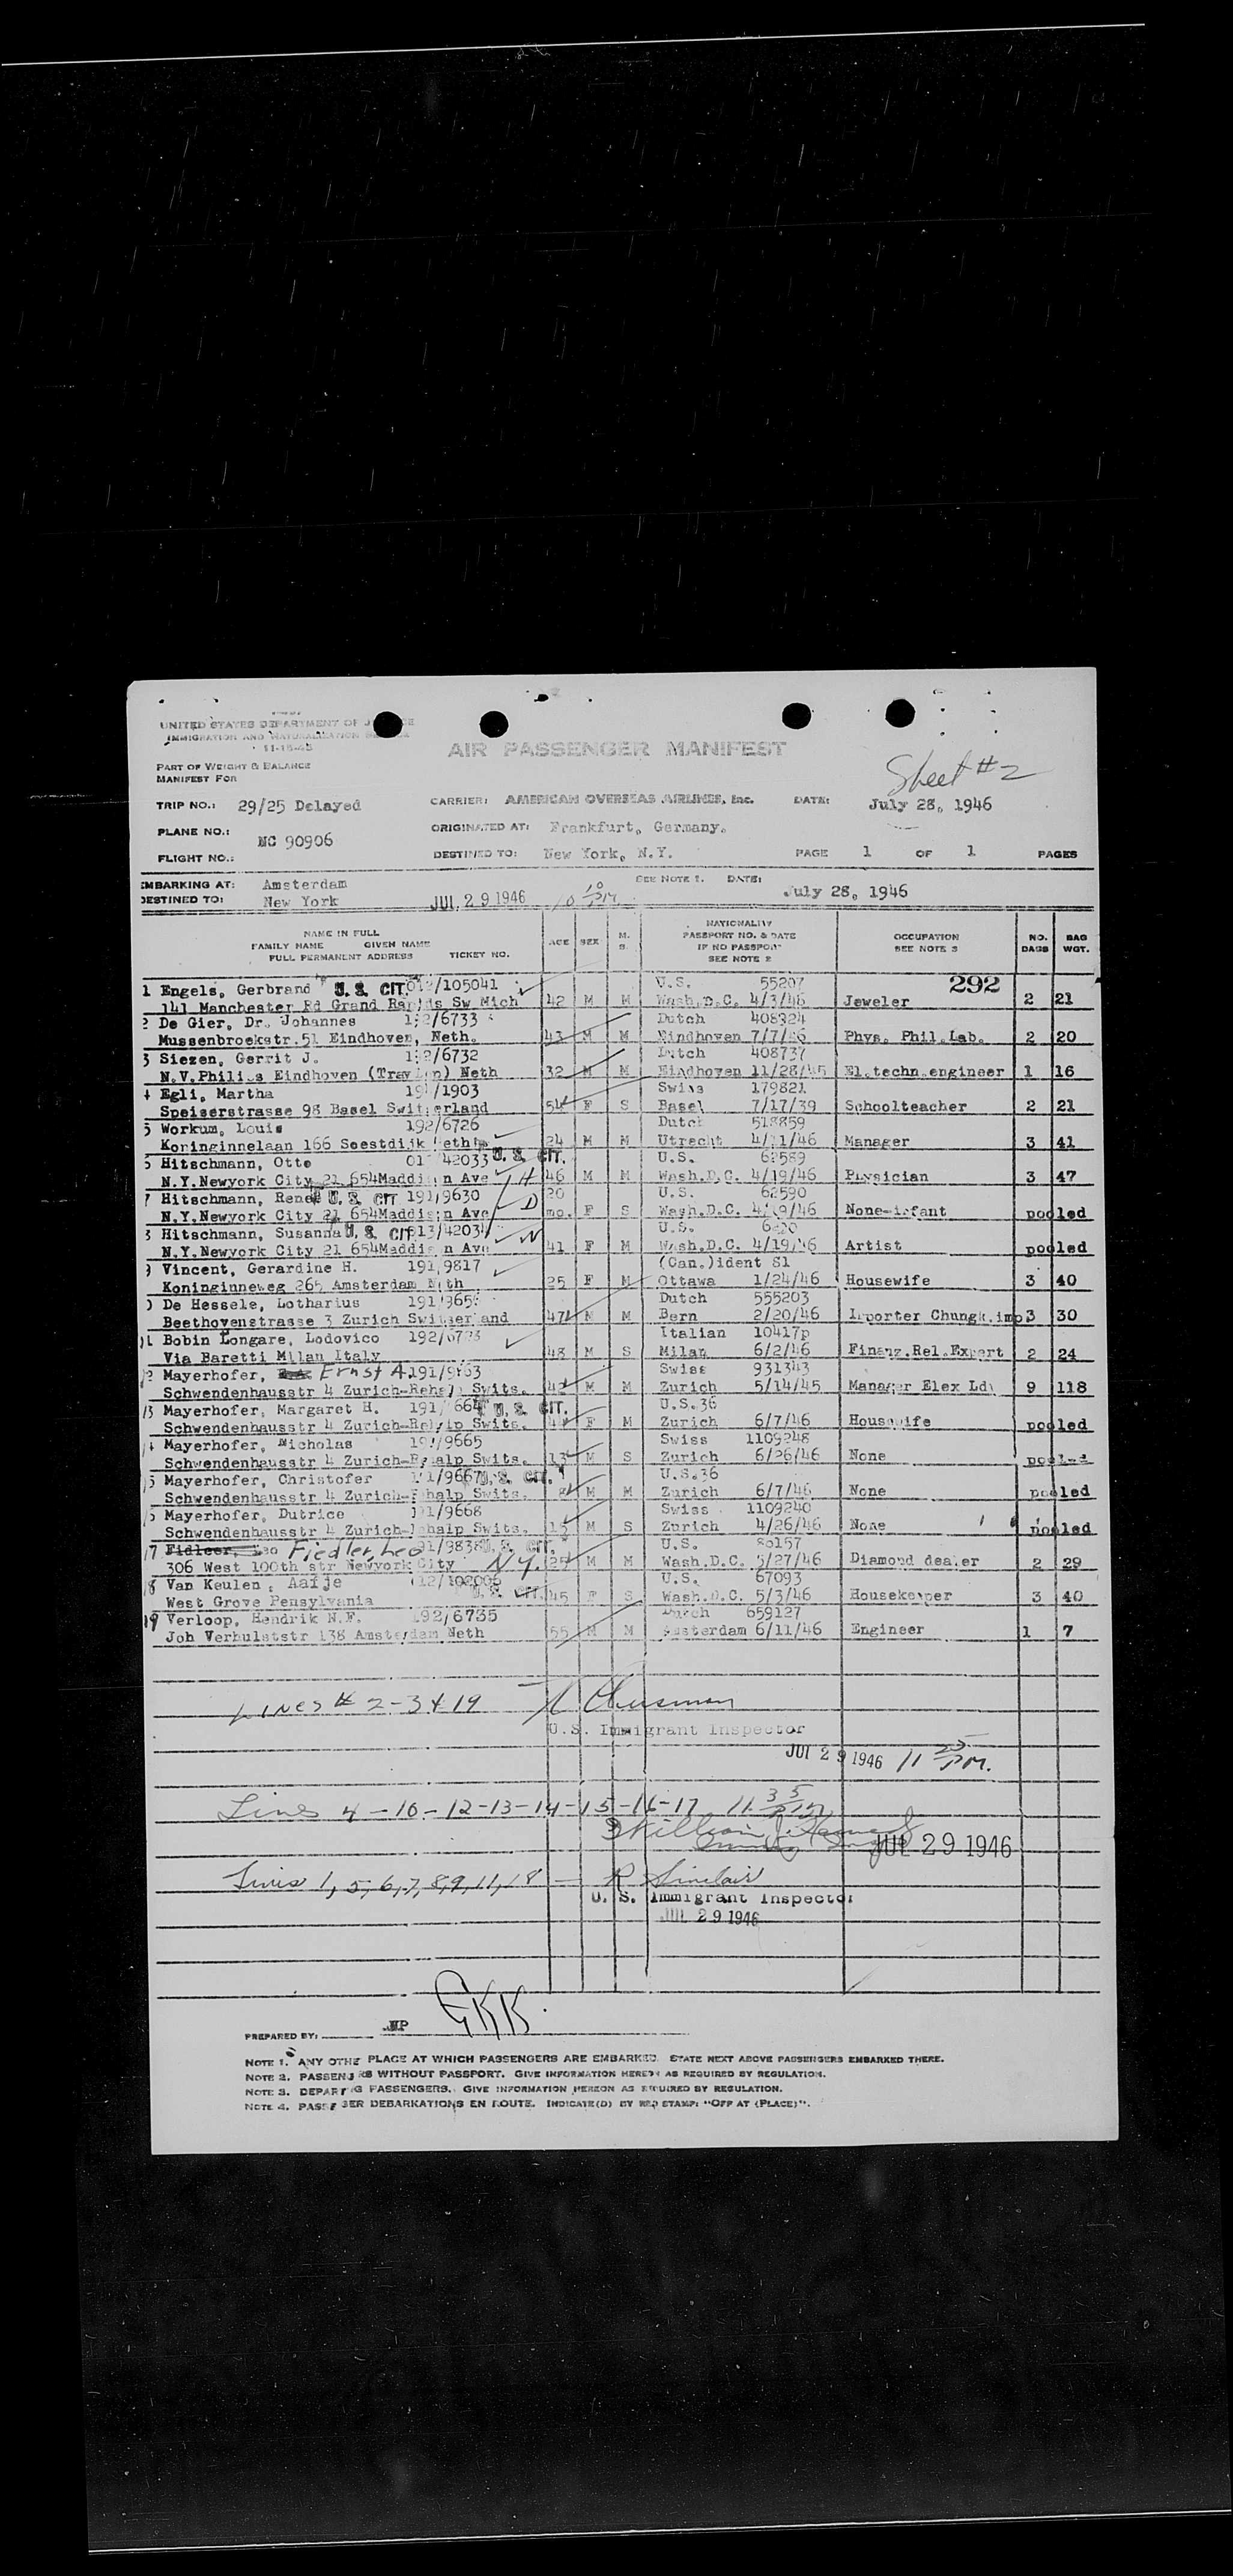 UNITED STATES DEPARTMENT OF
IMMIGRATION AND NATURALIZATION
11-15-45
AIR PASSENGER MANIFEST
PART OF WEIGHT & BALANCE
MANIFEST FOR
Sheet #2
TRIP NO.: 29/25 Delayed CARRIER: AMERICAN OVERSEAS AIRLINES, Inc. DATE: July 28, 1946
PLANE NO.: NC 90906 ORIGINATED AT: Frankfurt, Germany.
FLIGHT NO.: DESTINED TO: New York, N.Y. PAGE 1 OF 1 PAGES
EMBARKING AT: Amsterdam SEE NOTE 1. DATE: July 28, 1946
DESTINED TO: New York JUL 29 1946 10 10 PM
NAME IN FULL
FAMILY NAME GIVEN NAME
FULL PERMANENT ADDRESS TICKET NO. AGE SEX M. S. NATIONALITY PASSPORT NO. & DATE IF NO PASSPORT SEE NOTE 2 OCCUPATION SEE NOTE 3 NO. BAGS BAG WGT.
292
1 Engels, Gerbrand U.S. CIT /105041 U.S. 55207
141 Manchester Rd Grand Rapids Sw Mich 42 M M Wash.D.C. 4/3/46 Jeweler 2 21
2 De Gier, Dr. Johannes /6733 Dutch 408324
Mussenbroekstr.51 Eindhoven, Neth. 43 M M Eindhoven 7/7/ Phys. Phil.Lab. 2 20
3 Siezen, Gerrit J. /6732 Dutch 408737
N.V.Philips Eindhoven Neth 32 M M Eindhoven 11/28/45 El.techn.engineer 1 16
4 Egli, Martha /1903 Swiss 179821
Speiserstrasse 98 Basel Switzerland 54 F S Basel 7/17/39 Schoolteacher 2 21
5 Workum, Louis 192/6726 Dutch 518859
Koninginnelaan 166 Soestdijk Neth 24 M M Utrecht /46 Manager 3 41
Hitschmann, Otto 42033 U.S. CIT. U.S. 62589
N.Y.Newyork City 21 654Maddison Ave H 46 M M Wash.D.C. 4/19/46 Physician 3 47
7 Hitschmann, Renee U.S. CIT 191/9630 20 U.S. 62590
N.Y.Newyork City 21 654Maddison Ave D mo. F S Wash.D.C. /46 None-infant pooled
Hitschmann, Susanna U.S. CIT /42034 U.S.
N.Y.Newyork City 21 654Maddison Ave W 41 F M Wash.D.C. 4/19/46 Artist pooled
Vincent, Gerardine H. 191/9817 (Can.)ident S1
Koninginneweg 265 Amsterdam Neth 25 F M Ottawa 1/24/46 Housewife 3 40
De Hessele, Lotharius Dutch 555203
Beethovenstrasse 3 Zurich Switserland 47 M M Bern 2/20/46 Importer Chungk.imp 3 30
Bobin Longare, Lodovico Italian 10417p
Via Baretti Milan Italy 48 M S Milan 6/2/46 Finanz.Rel.Expert 2 24
Mayerhofer, Ernst A. Swiss 931343
Schwendenhausstr 4 Zurich-Rehalp Swits. 42 M M Zurich 5/14/45 Manager Elex Ld 9 118
13 Mayerhofer, Margaret H. U.S. CIT. U.S.36
Schwendenhausstr 4 Zurich-Rehalp Swits. F M Zurich 6/7/46 Housewife pooled
Mayerhofer, Nicholas /9665 Swiss 1109248
Schwendenhausstr 4 Zurich-Rehalp Swits. 13 M S Zurich 6/26/46 None pooled
Mayerhofer, Christofer /9667 U.S. CIT. U.S.36
Schwendenhausstr 4 Zurich-Rehalp Swits. 8 M M Zurich 6/7/46 None pooled
Mayerhofer, Dutrice /9668 Swiss 1109240
Schwendenhausstr 4 Zurich-Rehalp Swits. 15 M S Zurich 4/26/46 None pooled
17 Fidleer, Leo Fiedler, Leo /9838 U.S. CIT. U.S. 80157
306 West 100th str Newyork City N.Y. 25 M M Wash.D.C. 5/27/46 Diamond dealer 2 29
18 Van Keulen, Aafje U.S. CIT. U.S. 67093
West Grove Pensylvania 45 F S Wash.D.C. 5/3/46 Housekeeper 3 40
19 Verloop, Hendrik N.F. 192/6735 Dutch 659127
Joh Verhulststr 138 Amsterdam Neth 55 M M Amsterdam 6/11/46 Engineer 1 7
Lines # 2-3 & 19
U.S. Immigrant Inspector
JUL 29 1946 11 25 PM.
Lines 4-10-12-13-14-15-16-17 11 35 PM
JUL 29 1946
Lines 1, 5, 6, 7, 8, 9, 11, 18 — R Sinclair
U. S. Immigrant Inspector
JUL 29 1946
PREPARED BY: JP GKK.
NOTE 1. ANY OTHE PLACE AT WHICH PASSENGERS ARE EMBARKED. STATE NEXT ABOVE PASSENGERS EMBARKED THERE.
NOTE 2. PASSENGERS WITHOUT PASSPORT. GIVE INFORMATION HEREON AS REQUIRED BY REGULATION.
NOTE 3. DEPARTING PASSENGERS. GIVE INFORMATION HEREON AS REQUIRED BY REGULATION.
NOTE 4. PASSENGER DEBARKATIONS EN ROUTE. INDICATE(D) BY RED STAMP: "OFF AT (PLACE)".